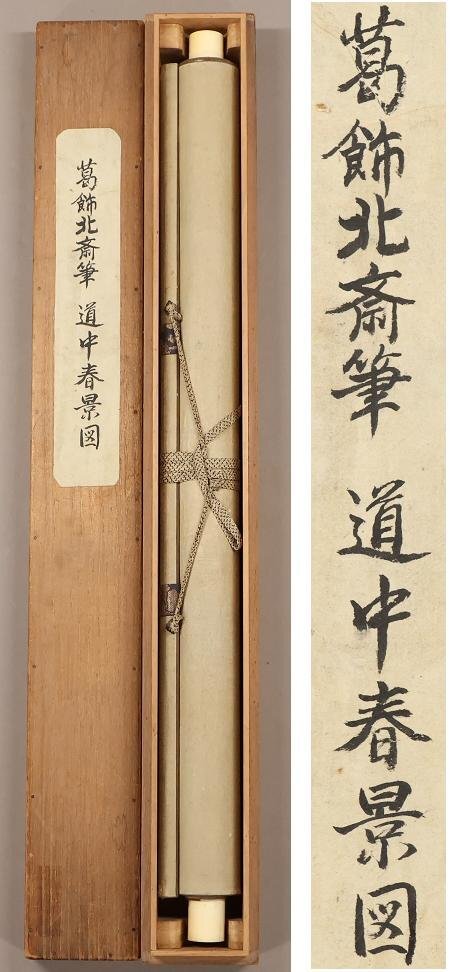 葛飾北斎筆 道中春景図
葛飾北斎筆 道中春景図